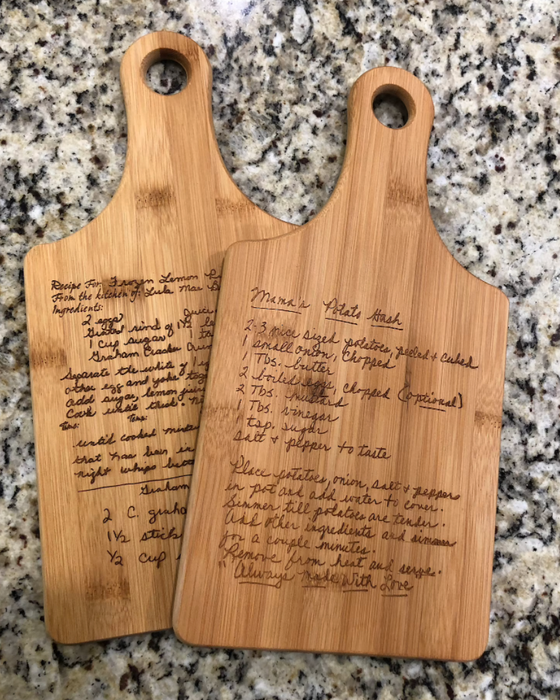 Recipe For: Frozen Lemon
From the kitchen of: Lula Mae
Ingredients:
2 eggs
Grated rind of 1½
1 cup sugar
Graham Cracker
Separate the white of 1
other egg and yoke
add sugar, lemon juice
Cook until thick.
until cooked
that has been in
night whips
Graham
2 C. graha
1½ stick
½ cup
Mama's Potato Hash
2-3 nice sized potatoes, peeled & cubed
1 small onion, chopped
1 Tbs. butter
2 boiled eggs, chopped (optional)
2 Tbs. mustard
1 Tbs. vinegar
1 tsp. sugar
salt & pepper to taste
Place potatoes, onion, salt & pepper
in pot and add water to cover.
Simmer till potatoes are tender.
Add other ingredients and simmer
for a couple minutes.
Remove from heat and serve.
"Always Made With Love